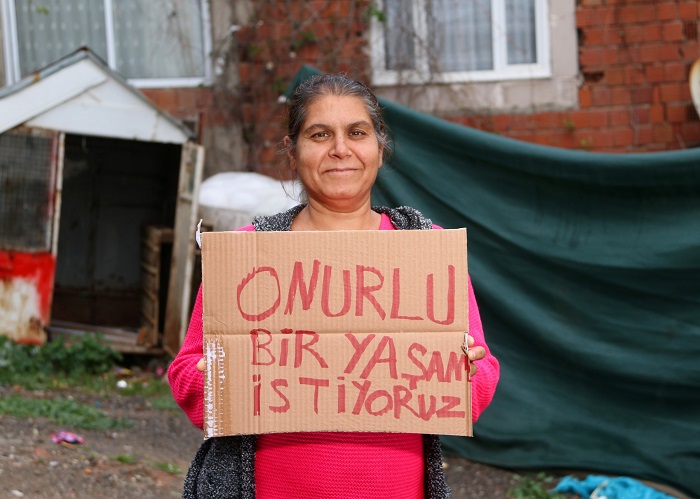 ONURLU
BİR YAŞAM
İSTİYORUZ